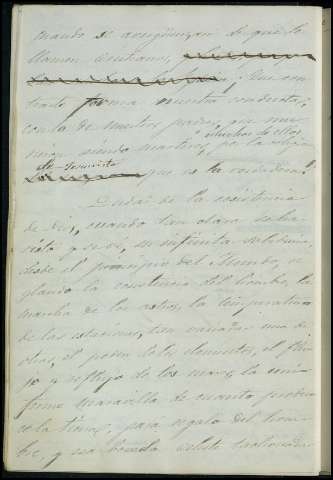 mando se avergüenzan de que los
llamen cristianos,
Que con
traste forma nuestra conducta,
con la de nuestros padres, que mu
rieron siendo martires, por la religion
muchos de ellos
que es la verdadera!
Dudar de la existencia
de Dios, cuando tan claro se ha
visto y se ve, su infinita sabiduria,
desde el principio del Mundo, re
glando la existencia del hombre, la
marcha de los astros, la temperatura
de las estaciones, tan variadas una de
otras, el poder de los elementos, el flu
jo y reflujo de los mares, la uni
forme maravilla de cuanto produ
ce la tierra, para regalo del hom
bre, y esa bóveda celeste